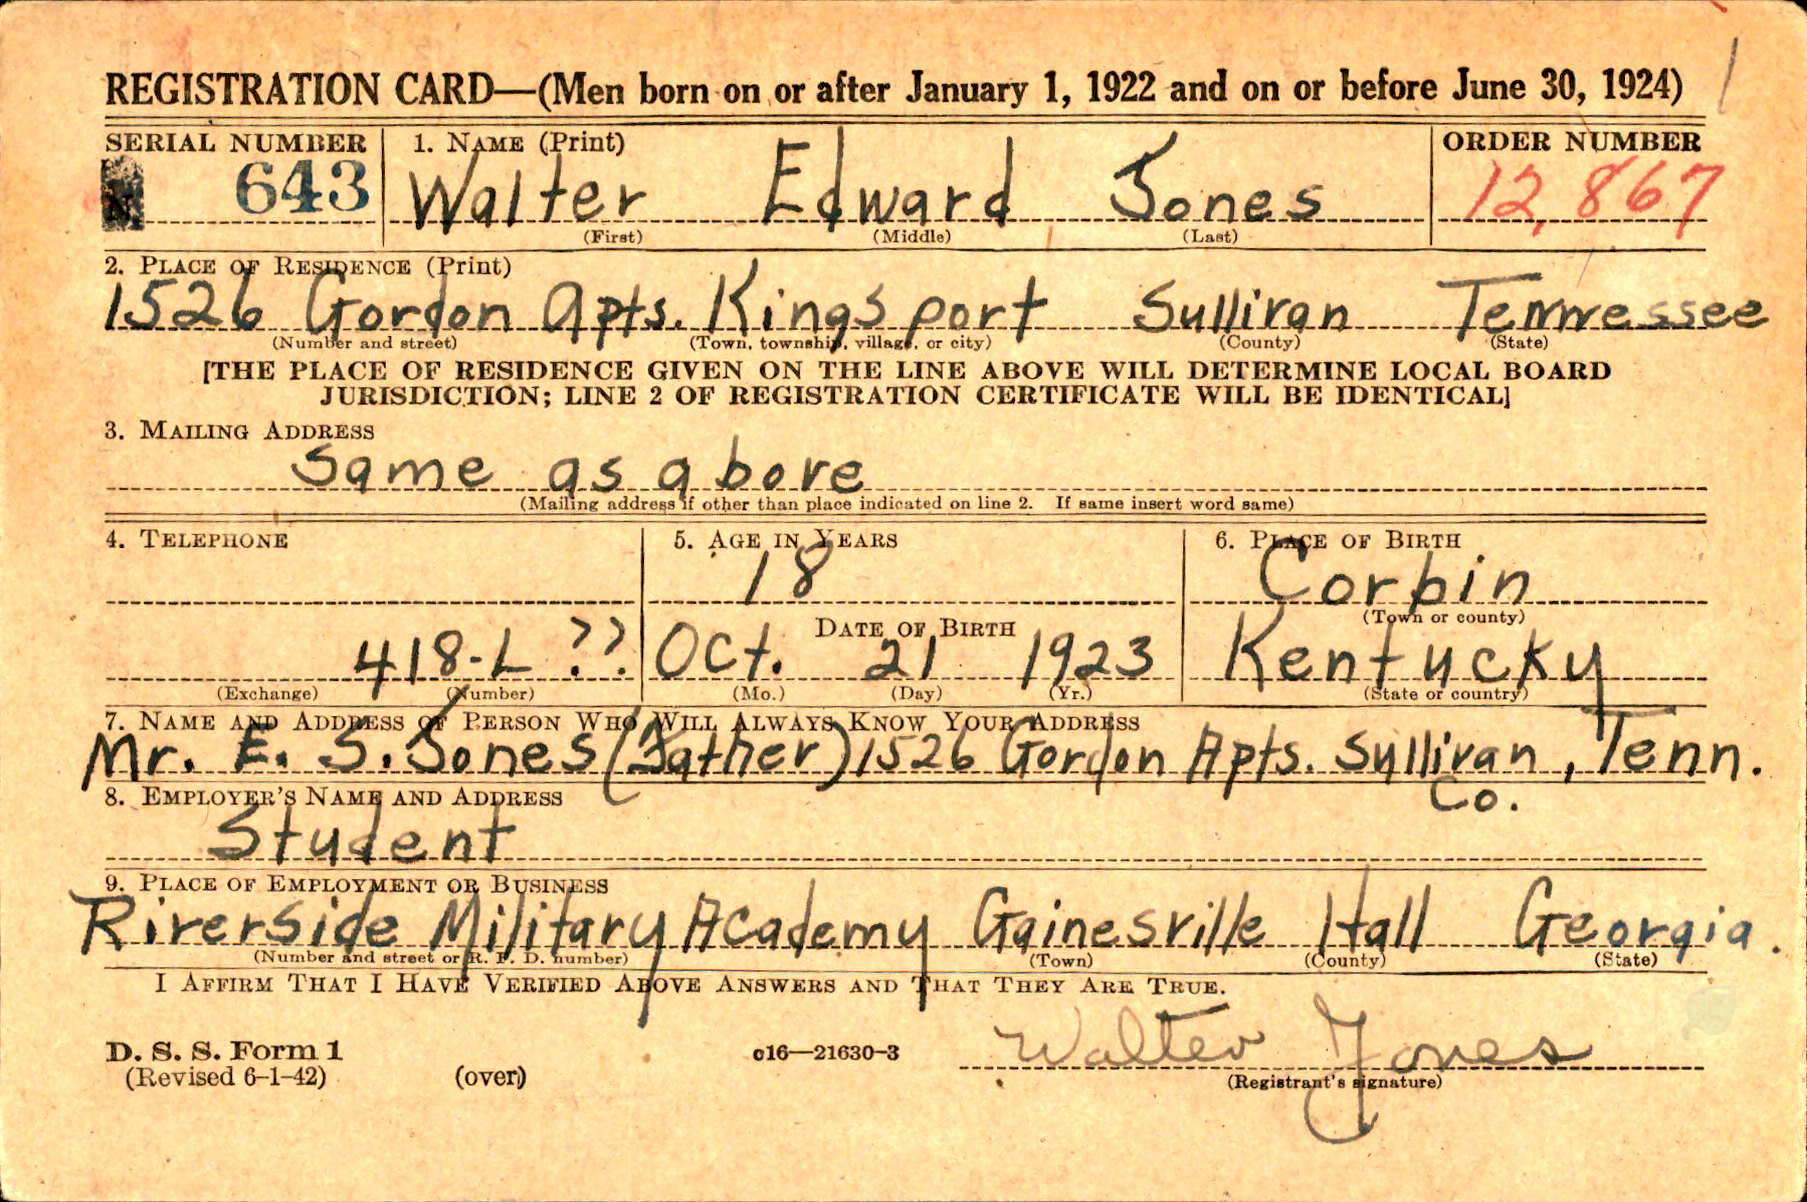 REGISTRATION CARD—(Men born on or after January 1, 1922 and on or before June 30, 1924)
SERIAL NUMBER 1. NAME (Print) ORDER NUMBER
N 643 Walter Edward Jones 12,867
(First) (Middle) (Last)
2. PLACE OF RESIDENCE (Print)
1526 Gordon Apts. Kingsport Sullivan Tennessee
(Number and street) (Town, township, village, or city) (County) (State)
[THE PLACE OF RESIDENCE GIVEN ON THE LINE ABOVE WILL DETERMINE LOCAL BOARD
JURISDICTION; LINE 2 OF REGISTRATION CERTIFICATE WILL BE IDENTICAL]
3. MAILING ADDRESS
Same as above
(Mailing address if other than place indicated on line 2. If same insert word same)
4. TELEPHONE 5. AGE IN YEARS 6. PLACE OF BIRTH
18 Corbin
DATE OF BIRTH (Town or county)
418-L ?? Oct. 21 1923 Kentucky
(Exchange) (Number) (Mo.) (Day) (Yr.) (State or country)
7. NAME AND ADDRESS OF PERSON WHO WILL ALWAYS KNOW YOUR ADDRESS
Mr. E. S. Jones (Father) 1526 Gordon Apts. Sullivan, Tenn.
Co.
8. EMPLOYER'S NAME AND ADDRESS
Student
9. PLACE OF EMPLOYMENT OR BUSINESS
Riverside Military Academy Gainesville Hall Georgia.
(Number and street or R. F. D. number) (Town) (County) (State)
I AFFIRM THAT I HAVE VERIFIED ABOVE ANSWERS AND THAT THEY ARE TRUE.
Walter Jones
D. S. S. Form 1 c16—21630-3
(Revised 6-1-42) (over) (Registrant's signature)